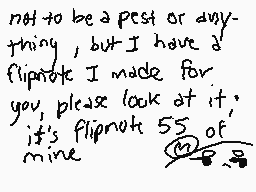 not to be a pest or any-
thing, but I have a
flipnote I made for
you, please look at it,
it's flipnote 55 of
mine
M